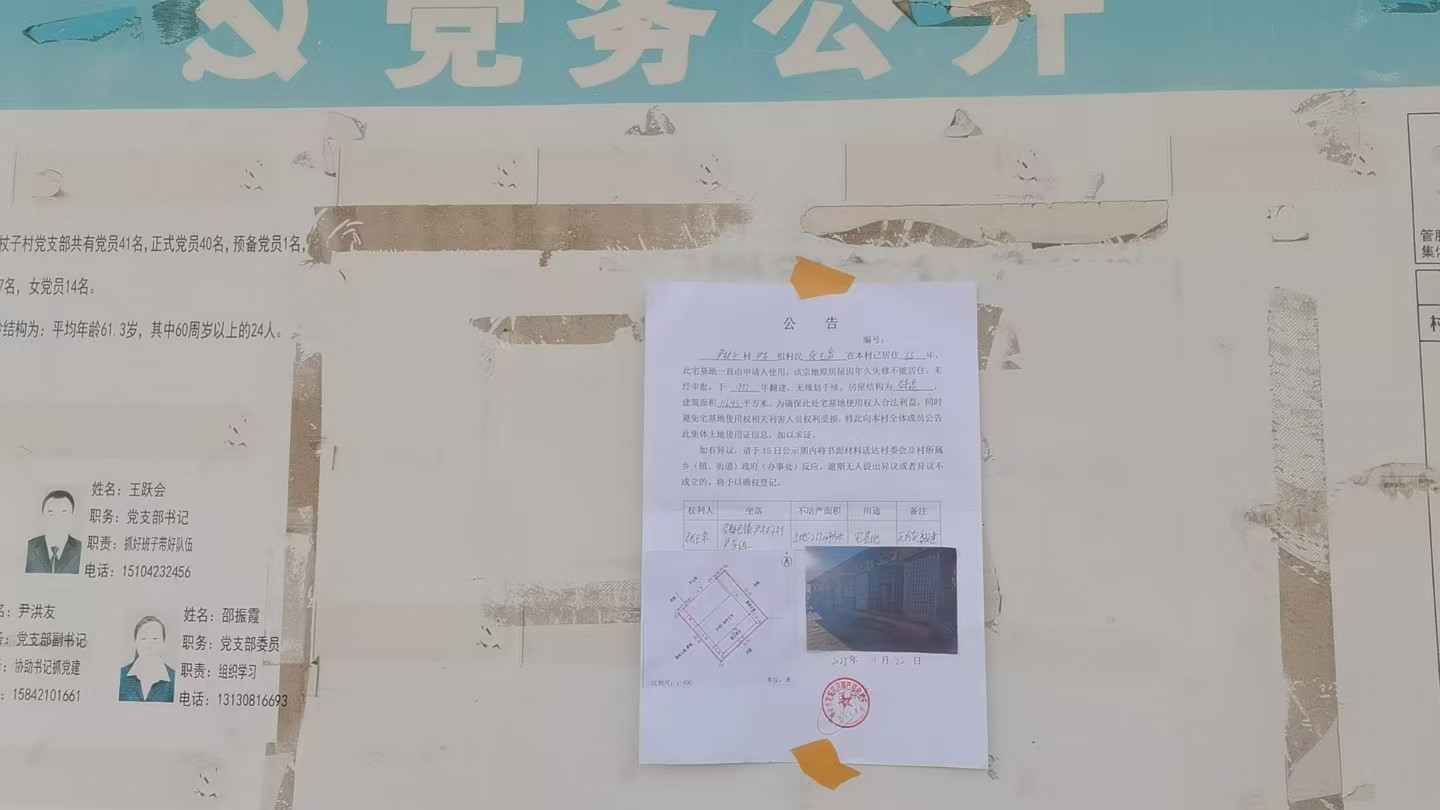 党务公开
杖子村党支部共有党员41名,正式党员40名,预备党员1名,
7名,女党员14名。
结构为:平均年龄61.3岁,其中60周岁以上的24人。
姓名:王跃会
职务:党支部书记
职责:抓好班子带好队伍
电话:15104232456
名:尹洪友
党支部副书记
协助书记抓党建
:15842101661
姓名:邵振霞
职务:党支部委员
职责:组织学习
电话:13130816693
公 告
编号:
村 组村民 在本村已居住 年,
此宅基地一直由申请人使用,该宗地原房屋因年久失修不能居住,未
经审批,于 年翻建,无规划手续。房屋结构为 ,
建筑面积 平方米。为确保此处宅基地使用权人合法利益,同时
避免宅基地使用权相关利害人员权利受损,特此向本村全体成员公告
此集体土地使用证信息,加以求证。
如有异议,请于15日公示期内将书面材料送达村委会及村所属
乡(镇、街道)政府(办事处)反应,逾期无人提出异议或者异议不
成立的,将予以确权登记。
权利人 坐落 不动产面积 用途 备注
宅基地
2025年 11月 日
管
集体
村